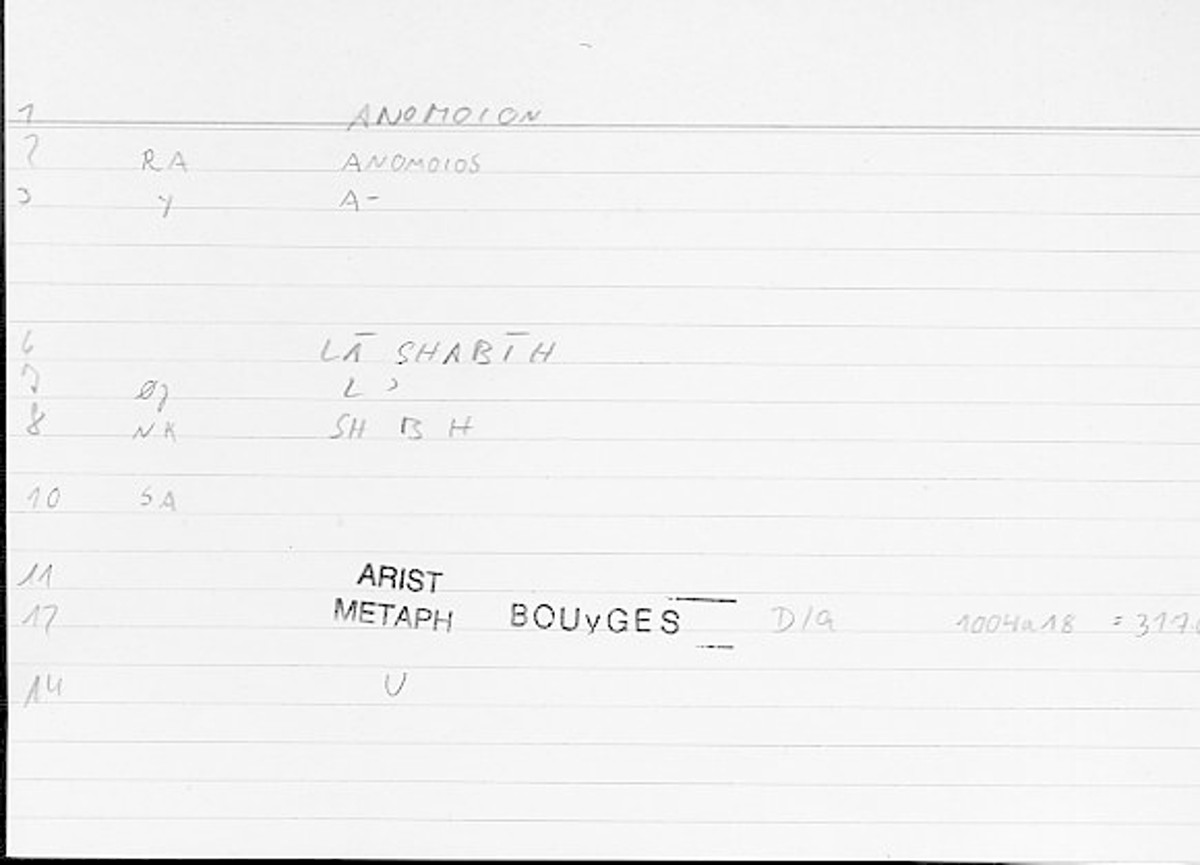 1 ANOMOION
2 RA ANOMOIOS
3 y A-
6 LĀ SHABĪH
7 L ʾ
8 NK SH B H
10 SA
11 ARIST
12 METAPH BOUyGES 1004a18 = 317.
14 U